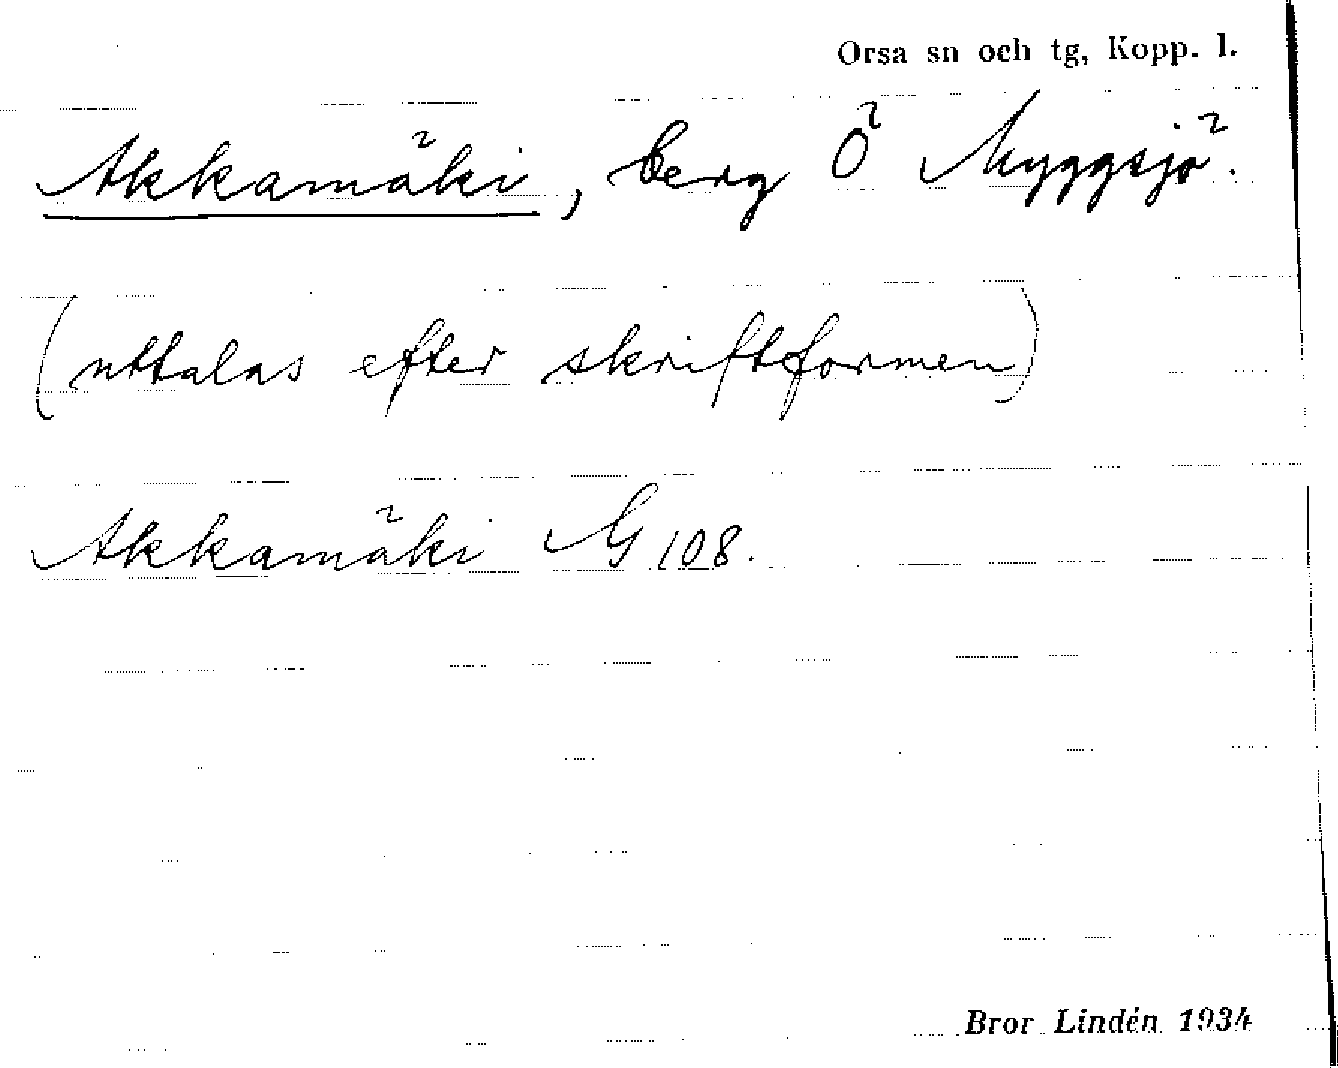 Orsa sn och tg, Kopp. l.
Akkamäki, berg Ö Myggsjö.
(uttalas efter skriftformen)
Akkamäki G 108.
Bror Lindén 1934